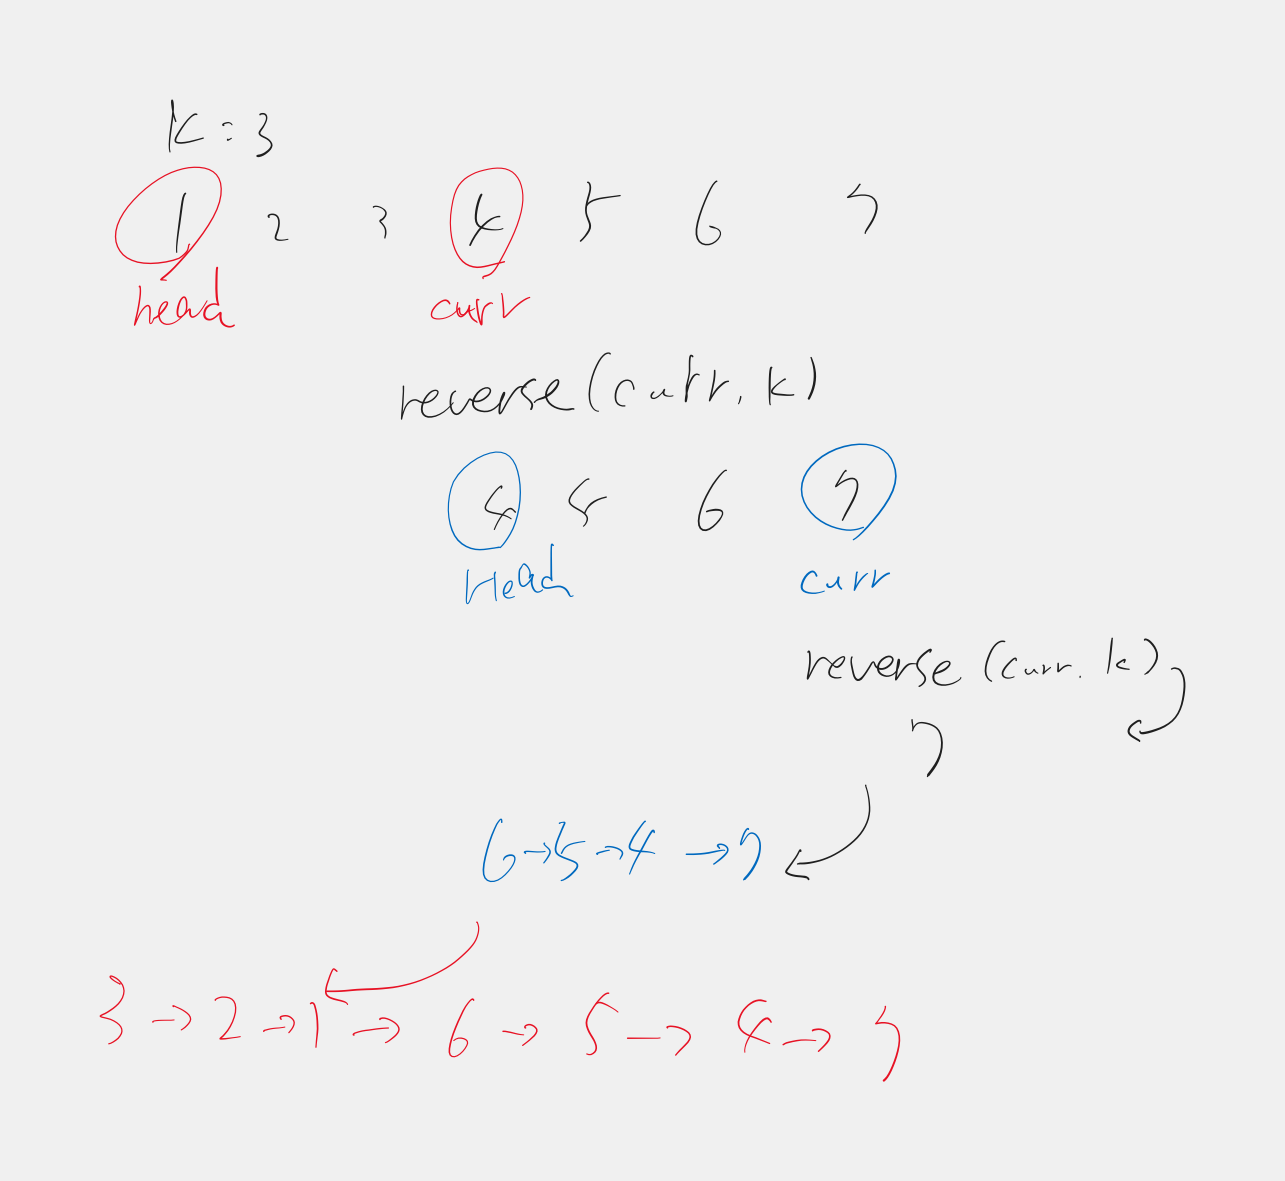 k=3
1 2 3 4 5 6 7
head curr
reverse(curr, k)
4 5 6 7
Head curr
reverse(curr. k)
7
6→5→4→7
3→2→1→6→5→4→7